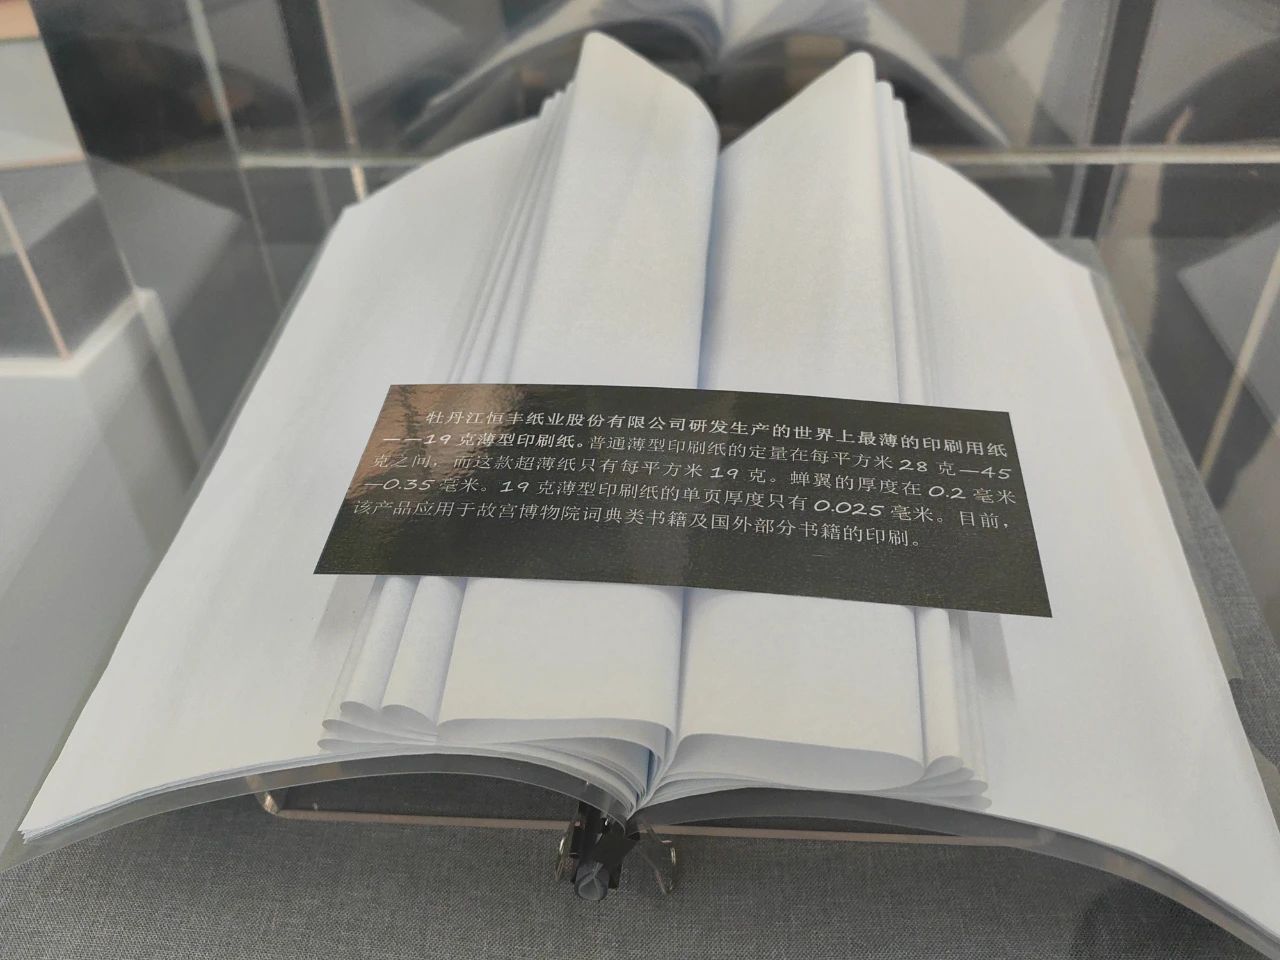 牡丹江恒丰纸业股份有限公司研发生产的世界上最薄的印刷用纸
——19 克薄型印刷纸。普通薄型印刷纸的定量在每平方米 28 克—45
克之间，而这款超薄纸只有每平方米 19 克。蝉翼的厚度在 0.2 毫米
—0.35 毫米。19 克薄型印刷纸的单页厚度只有 0.025 毫米。目前，
该产品应用于故宫博物院词典类书籍及国外部分书籍的印刷。